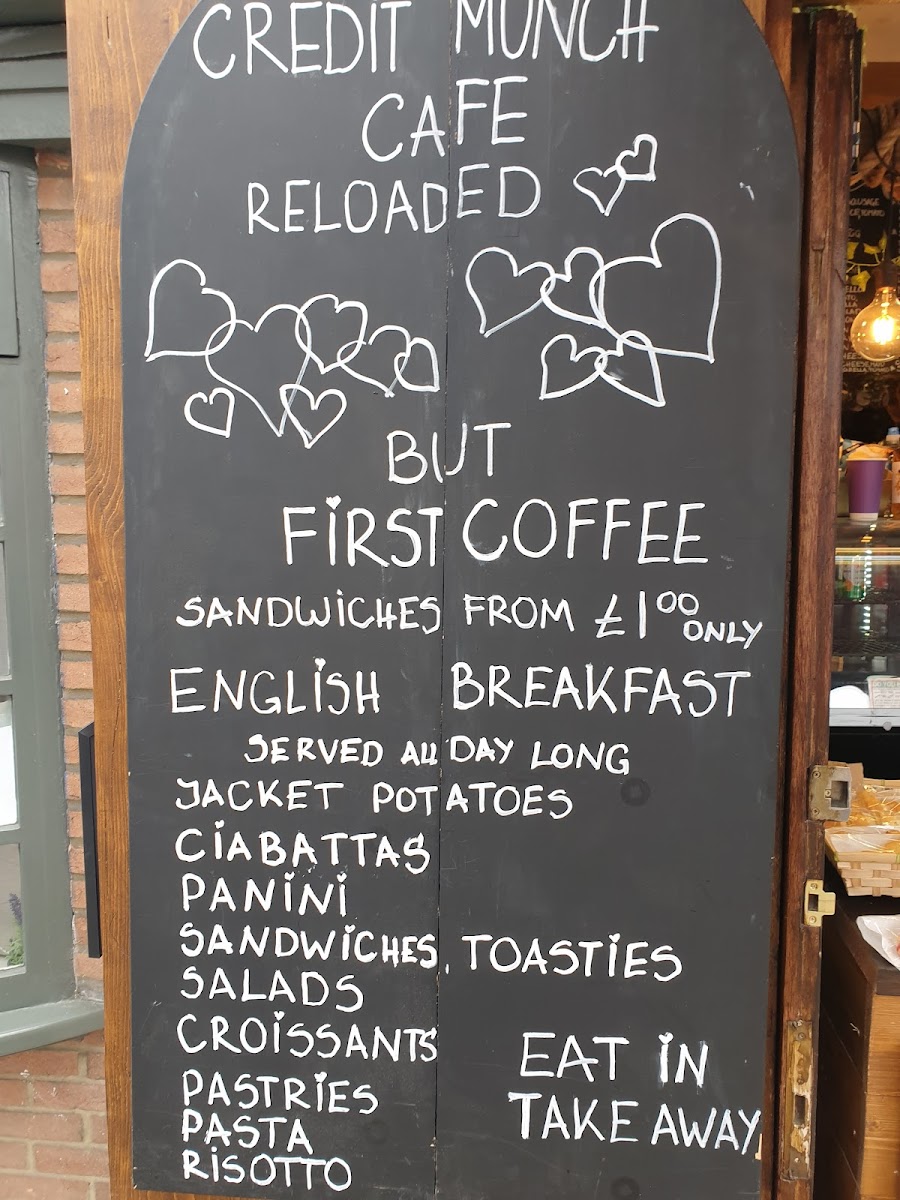 CREDIT MUNCH
CAFE
RELOADED
BUT
FIRST COFFEE
SANDWICHES FROM £1⁰⁰ ONLY
ENGLISH BREAKFAST
SERVED ALL DAY LONG
JACKET POTATOES
CIABATTAS
PANINI
SANDWICHES, TOASTIES
SALADS
CROISSANTS
PASTRIES
PASTA
RISOTTO
EAT IN
TAKE AWAY